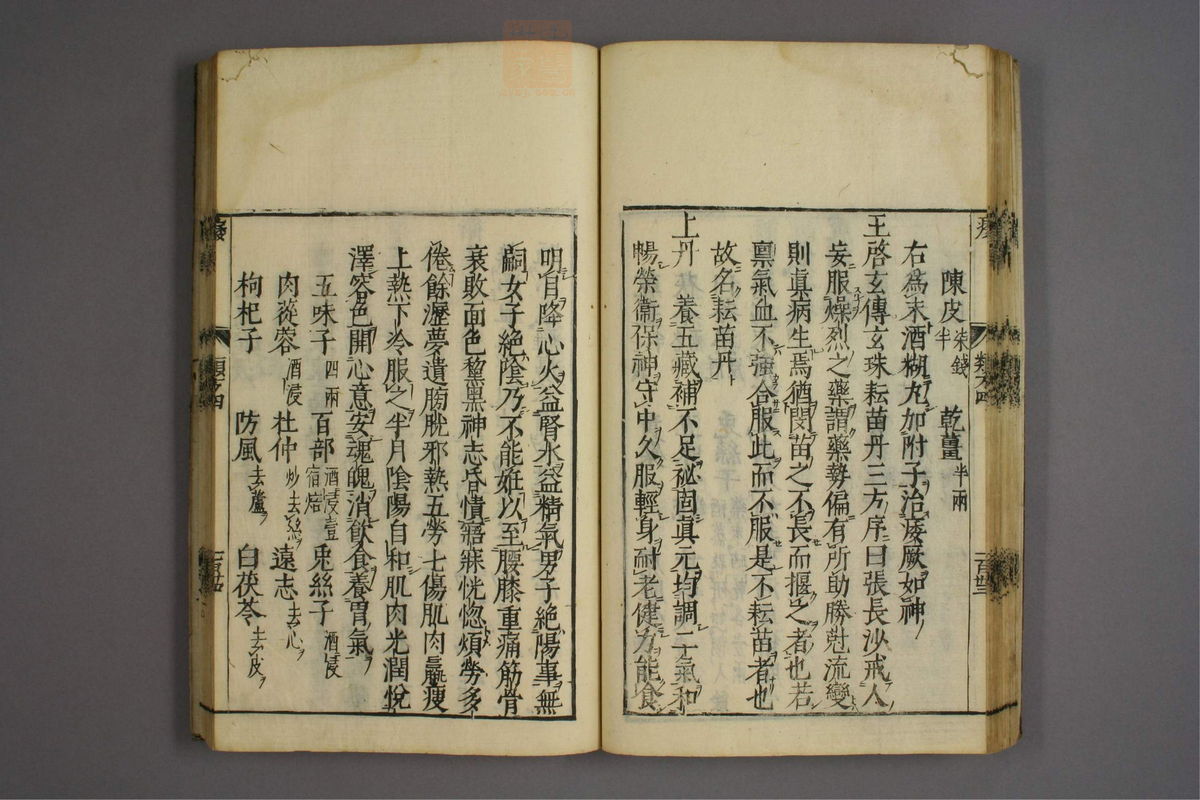 陳皮柒錢半 乾薑半兩
右爲末酒糊丸加附子治痿厥如神
王啓玄傳玄珠耘苗丹三方序曰張長沙戒人
妄服燥烈之藥謂藥勢偏有所助勝尅流變
則眞病生焉猶閔苗之不長而揠之者也若
禀氣血不強合服此而不服是不耘苗者也
故名耘苗丹
上丹 養五藏補不足祕固眞元均調二氣和
暢榮衞保神守中久服輕身耐老健力能食
明目降心火益腎水益精氣男子絶陽事無
嗣女子絶陰乃不能姙以至腰膝重痛筋骨
衰敗面色黧黑神志昏憒寤寐恍惚煩勞多
倦餘瀝夢遺膀胱邪熱五勞七傷肌肉羸瘦
上熱下冷服之半月陰陽自和肌肉光潤悅
澤容色開心意安魂魄消飮食養胃氣
五味子四兩 百部酒浸壹宿焙 兎絲子酒浸
肉蓯蓉酒浸 杜仲炒去絲 遠志去心
枸杞子 防風去蘆 白茯苓去皮